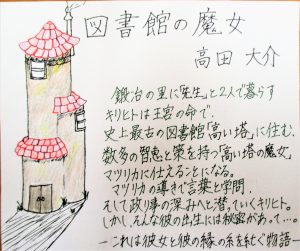 図書館の魔女
高田 大介
鍛冶の里に「先生」と2人で暮らす
キリヒトは王宮の命で、
史上最古の図書館「高い塔」に住む、
数多の智恵と策を持つ「高い塔の魔女」
マツリカに仕えることになる。
マツリカの導きで言葉と学問、
そして政事の深みへと潜っていくキリヒト。
しかし、そんな彼の出生には秘密があって…。
―これは彼女と彼の縁の糸を紡ぐ物語―